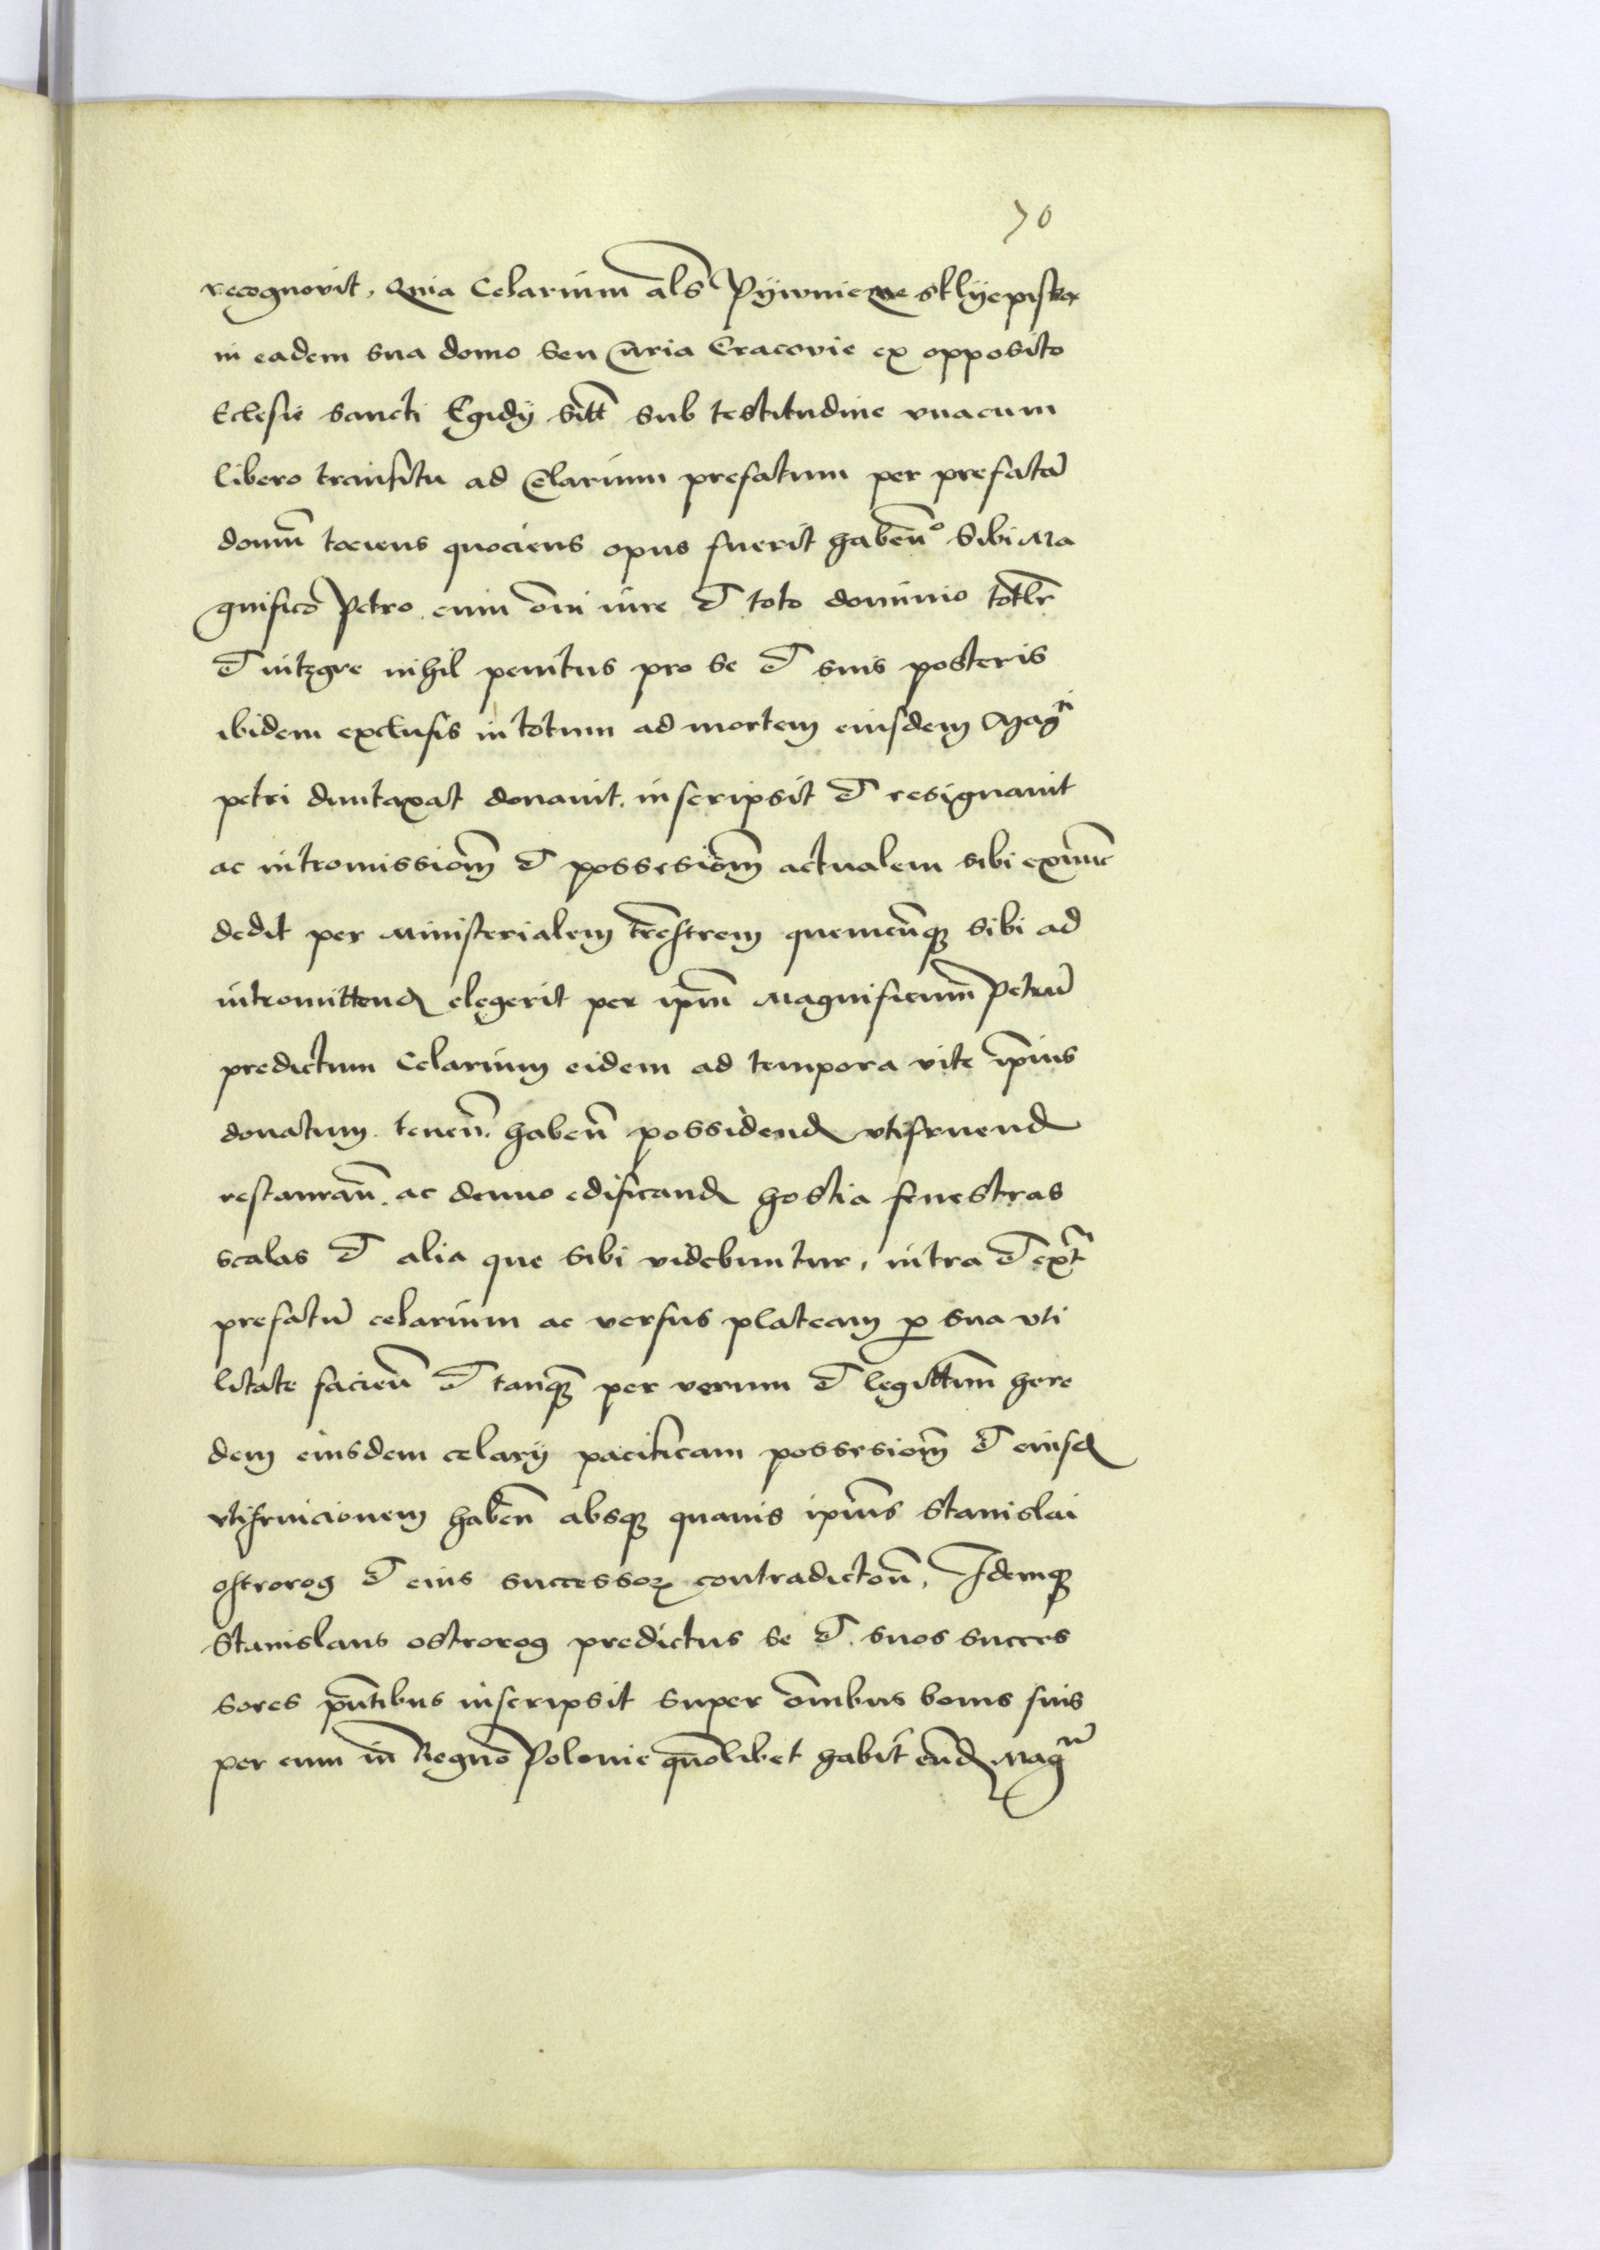 70
recognovit, Quia Celarium als̄ Pÿwnicze sklÿepisko
in eadem sua domo seu Curia Cracovie ex opposito
Eclesie sancti Egidÿ sitt̄ sub testitudine vnacum
libero transitu ad Celarium prefatum per prefatā
domū tociens quociens opus fuerit habeñ° Sibi Ma
gnifico Petro cum om̄i iure et toto dominio totl̄r
et integre nihil penitus pro se et suis posteris
ibidem exclusis in totum ad mortem eiusdem Magci
petri duntaxat donavit. inscripsit et resignavit
ac intromissiom̄ et possesiom̄ actualem sibi exnūc
dedit per Ministerialem tr̄estrem quemcūq sibi ad
intromittend elegerit per ipm̄ Magnificum Petrū
predictum Celarium eidem ad tempora vite ip̄ius
donatum. teneñ. habeñ possidend vtifruend
restaurañ. ac denuo edificand hostia fenestras
scalas et alia que sibi videbuntur, intra et ext̄
prefatū celarium ac versus plateam p sua vti
litate facieñ et tanq̄ per verum et legittim̄ here
dem eiusdem celarÿ pacificam possesiom̄ et eiusd
vtifruicionem habeñ absq quavis ipius Stanislai
ostrorog et eius successor contradictoñ, Idemq
Stanislaus ostrorog predictus se et suos succes
sores pn̄tibus inscripsit super om̄ibus bonis suis
per eum in Regno Polonie qn̄olibet habit̄ eūd Magcū